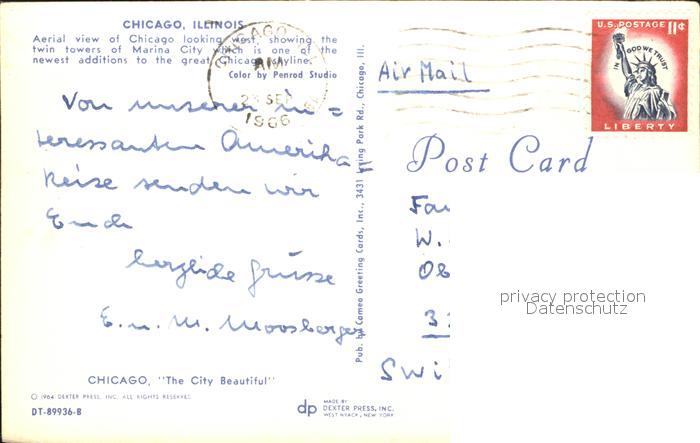 CHICAGO, ILLINOIS
Aerial view of Chicago looking west, showing the
twin towers of Marina City which is one of the
newest additions to the great Chicago skyline.
Color by Penrod Studio
CHICAGO
AM
23 SEP
1966
U.S. POSTAGE 11¢
IN GOD WE TRUST
LIBERTY
Air Mail
Von unserer in=
teressanten Amerika=
Reise senden wir
Euch
herzliche Grüsse
E. u. M. Moosberger
Pub. by Cameo Greeting Cards, Inc., 3431 Irving Park Rd., Chicago, Ill.
Post Card
Fa
W.
Ob
3
SWi
privacy protection
Datenschutz
CHICAGO, "The City Beautiful"
© 1964 DEXTER PRESS, INC. ALL RIGHTS RESERVED
DT-89936-B
dp
MADE BY
DEXTER PRESS, INC.
WEST NYACK, NEW YORK